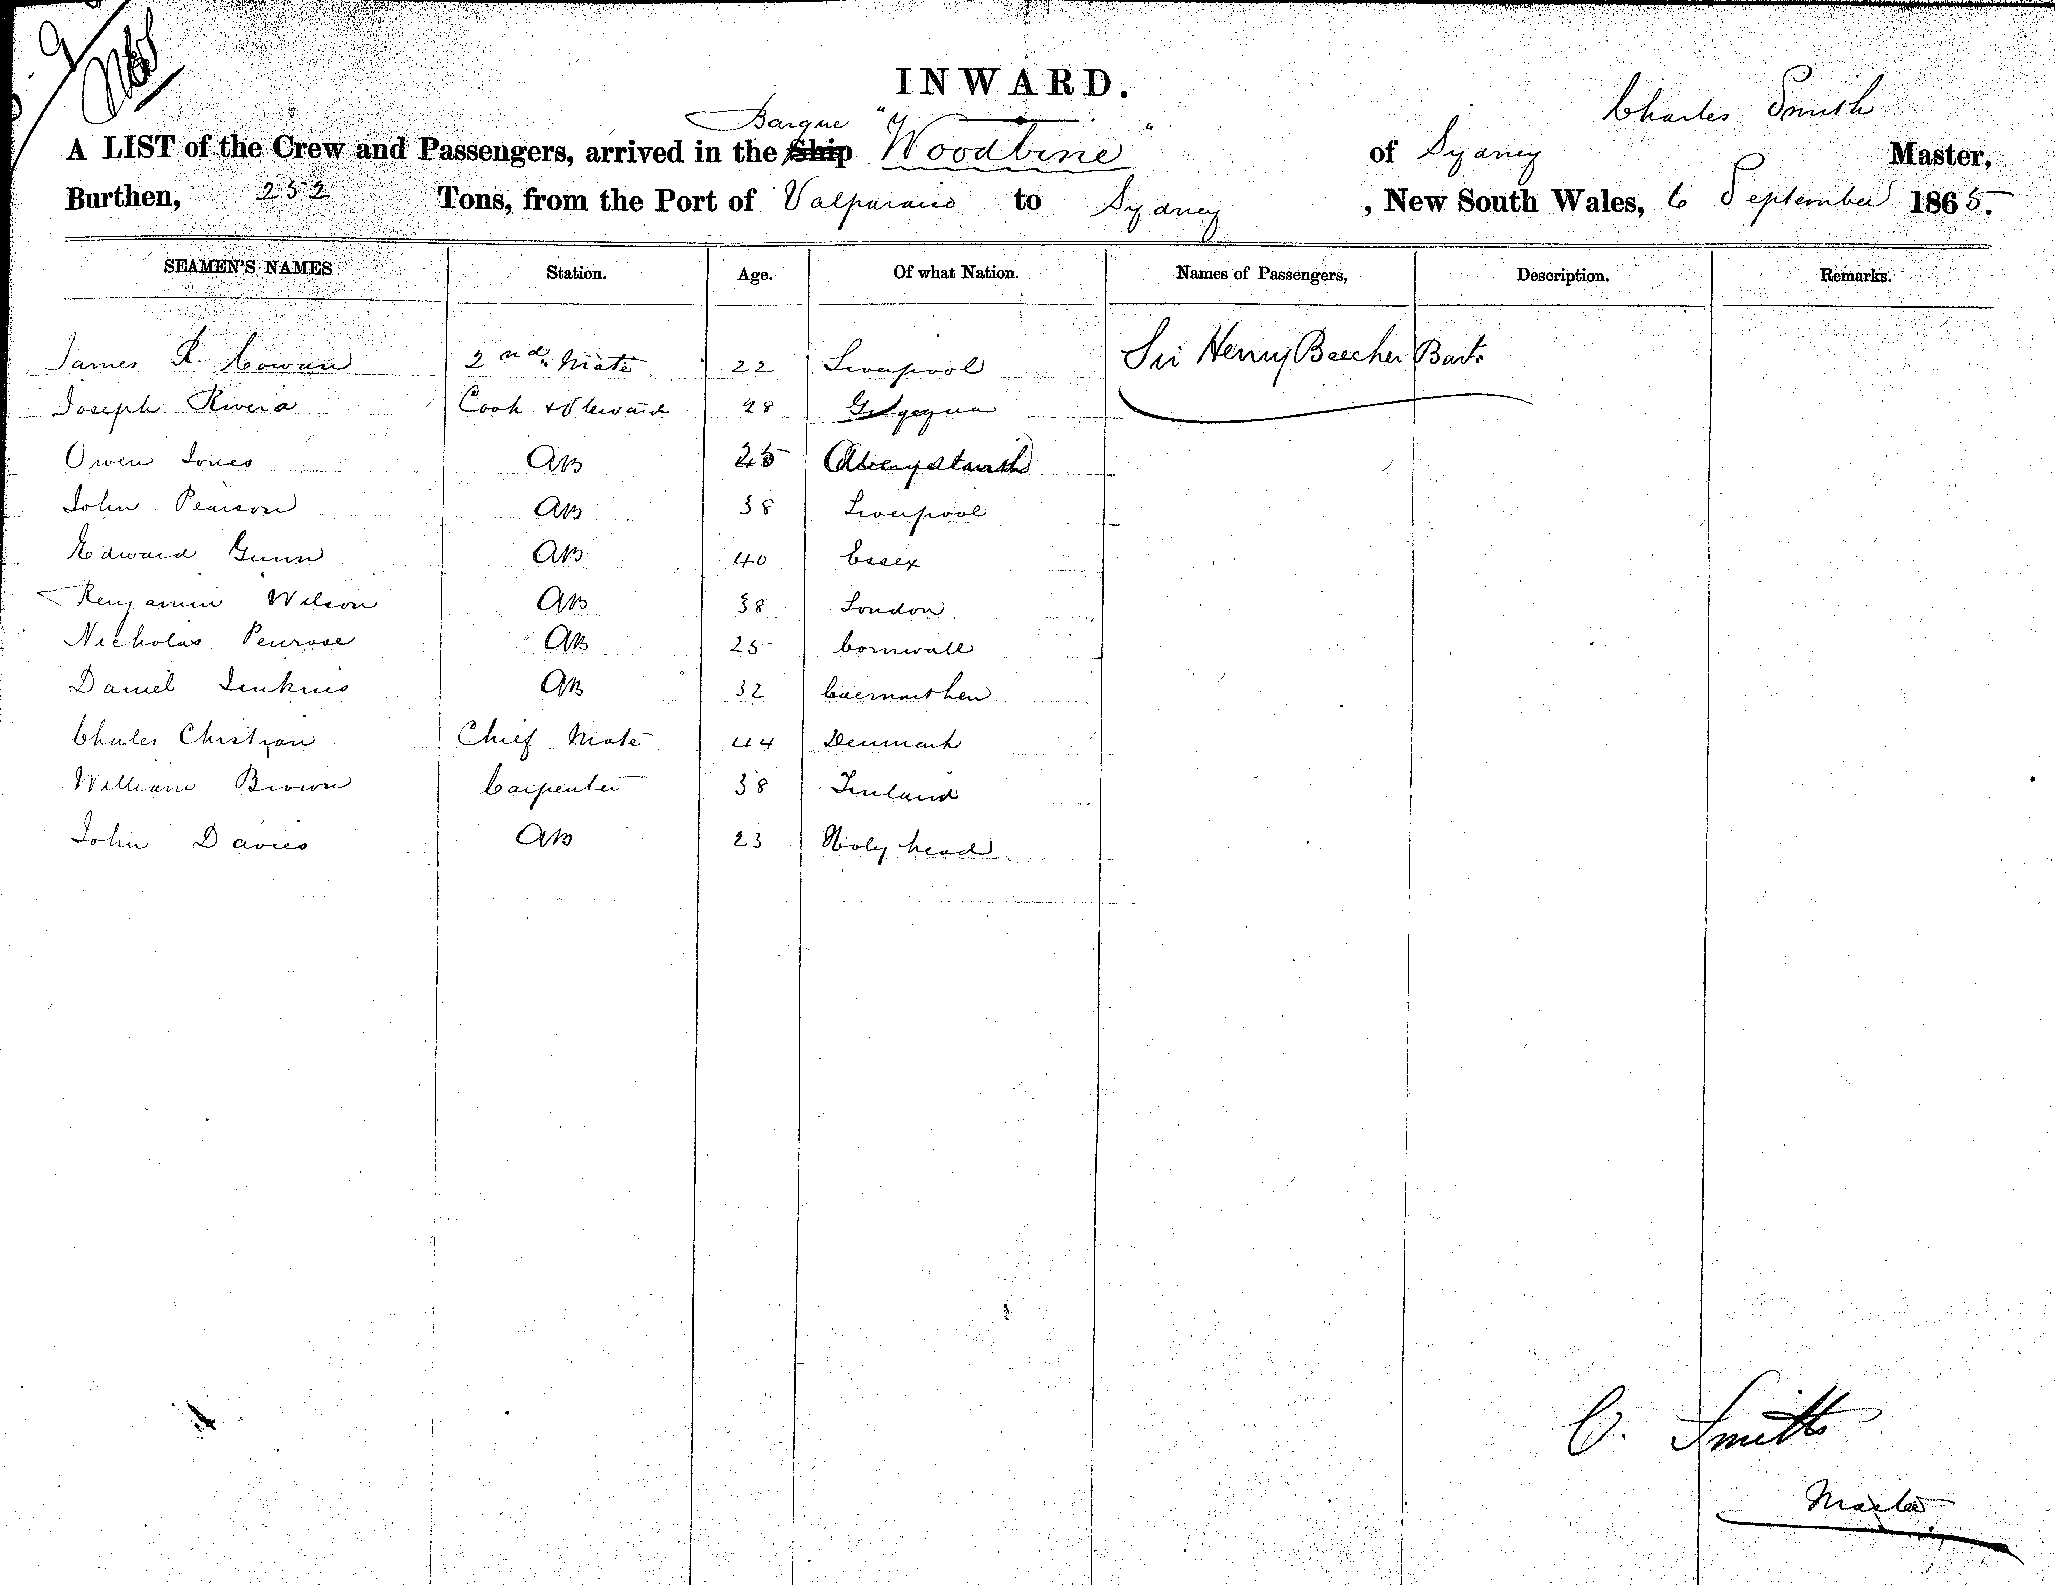 INWARD.
Charles Smith
Barque
A LIST of the Crew and Passengers, arrived in the Ship "Woodbine" of Sydney Master,
Burthen, 252 Tons, from the Port of Valparaiso to Sydney , New South Wales, 6 September 1865.
SEAMEN'S NAMES Station. Age. Of what Nation. Names of Passengers, Description. Remarks.
James R. Cowan 2nd Mate 22 Liverpool Sir Henry Beecher Bart.
Joseph Rivera Cook & Steward 28
Owen Jones AB 25 Aberystwith
John Pearson AB 38 Liverpool
Edward Gunn AB 40 Essex
Benjamin Wilson AB 38 London
Nicholas Penrose AB 25 Cornwall
Daniel Jenkins AB 32 Caermarthen
Charles Christian Chief Mate 44 Denmark
William Brown Carpenter 38 Finland
John Davies AB 23 Holy head
C. Smith
Master